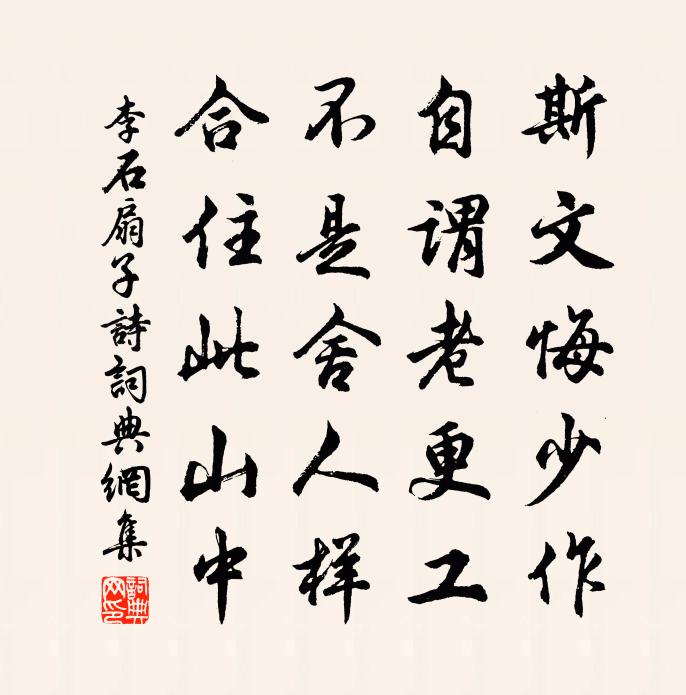 斯文悔少作
自谓老更工
不是舍人样
合住此山中
李石扇子詩詞典網集
詞典網印